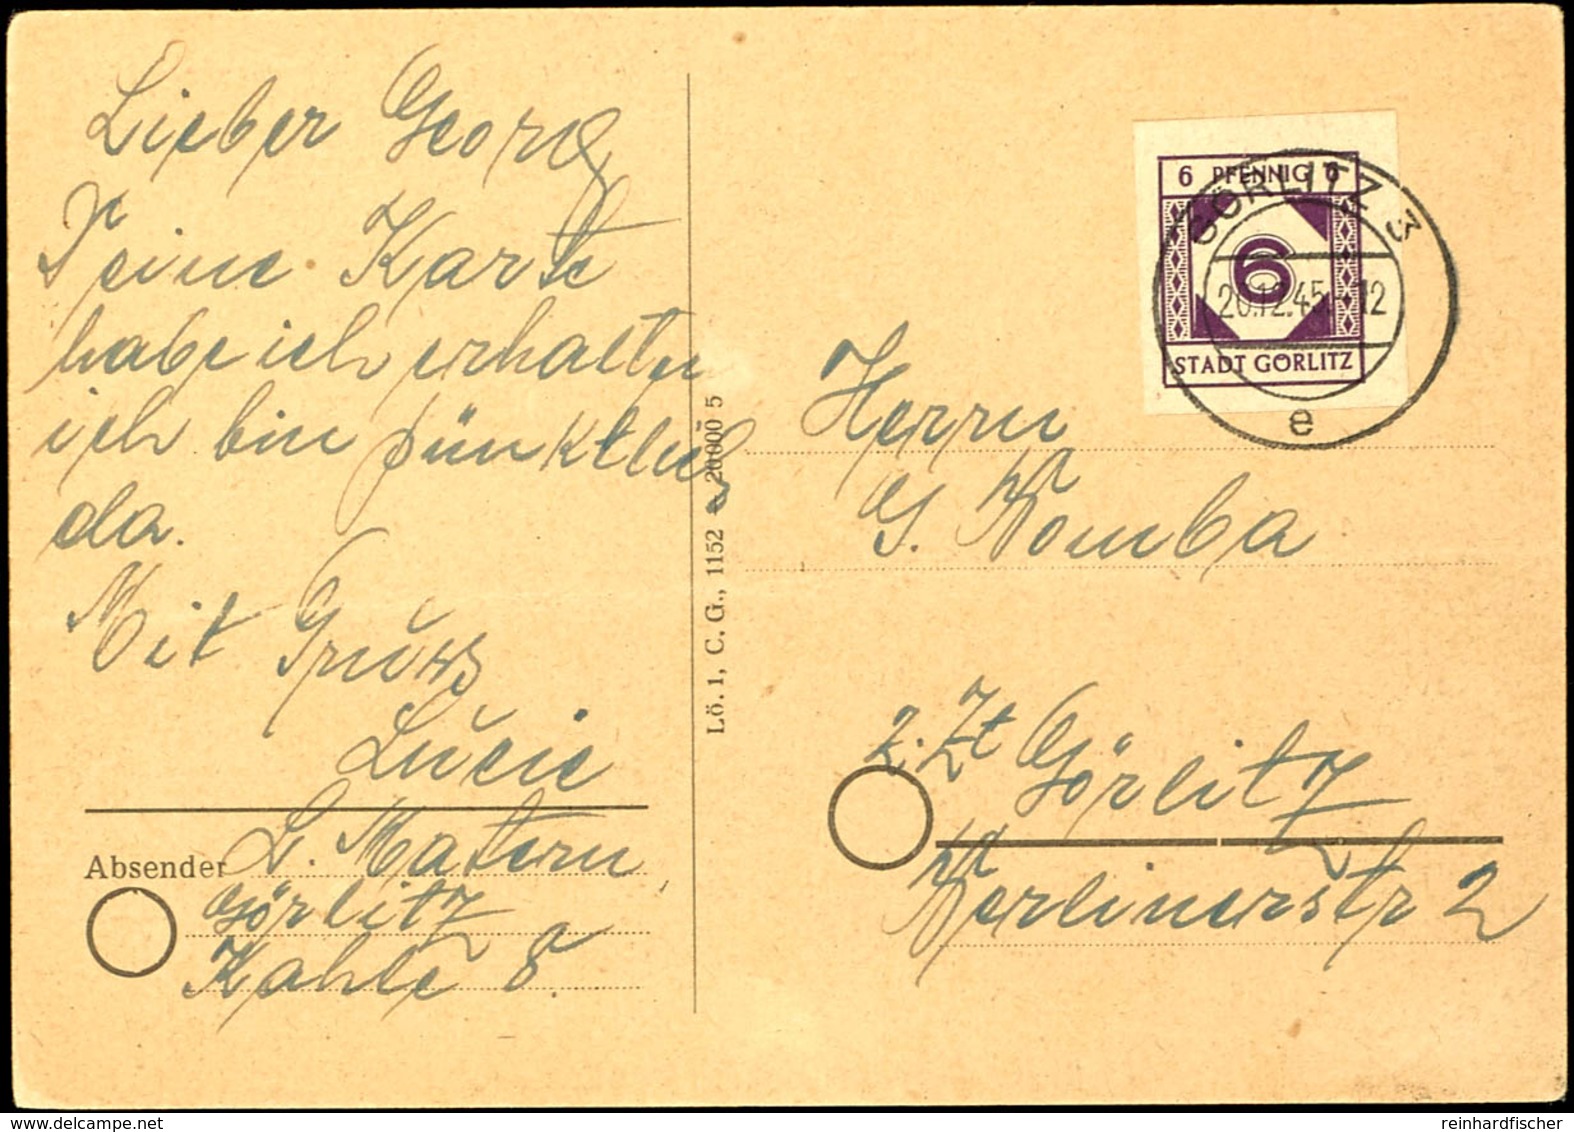 Lieber Georg
Deine Karte
habe ich erhalten
ich bin pünktlich
da.
Mit Gruss
Lucie
Absender L. Matern
Görlitz
Kahle 8.
Lö. 1, C. G., 1152 20000 5
6 PFENNIG 6
6
STADT GÖRLITZ
GÖRLITZ 3
20.12.45.- 12
e
Herrn
G. Womba
z. Zt Görlitz
Berlinerstr 2
delcampe.net
reinhardfischer